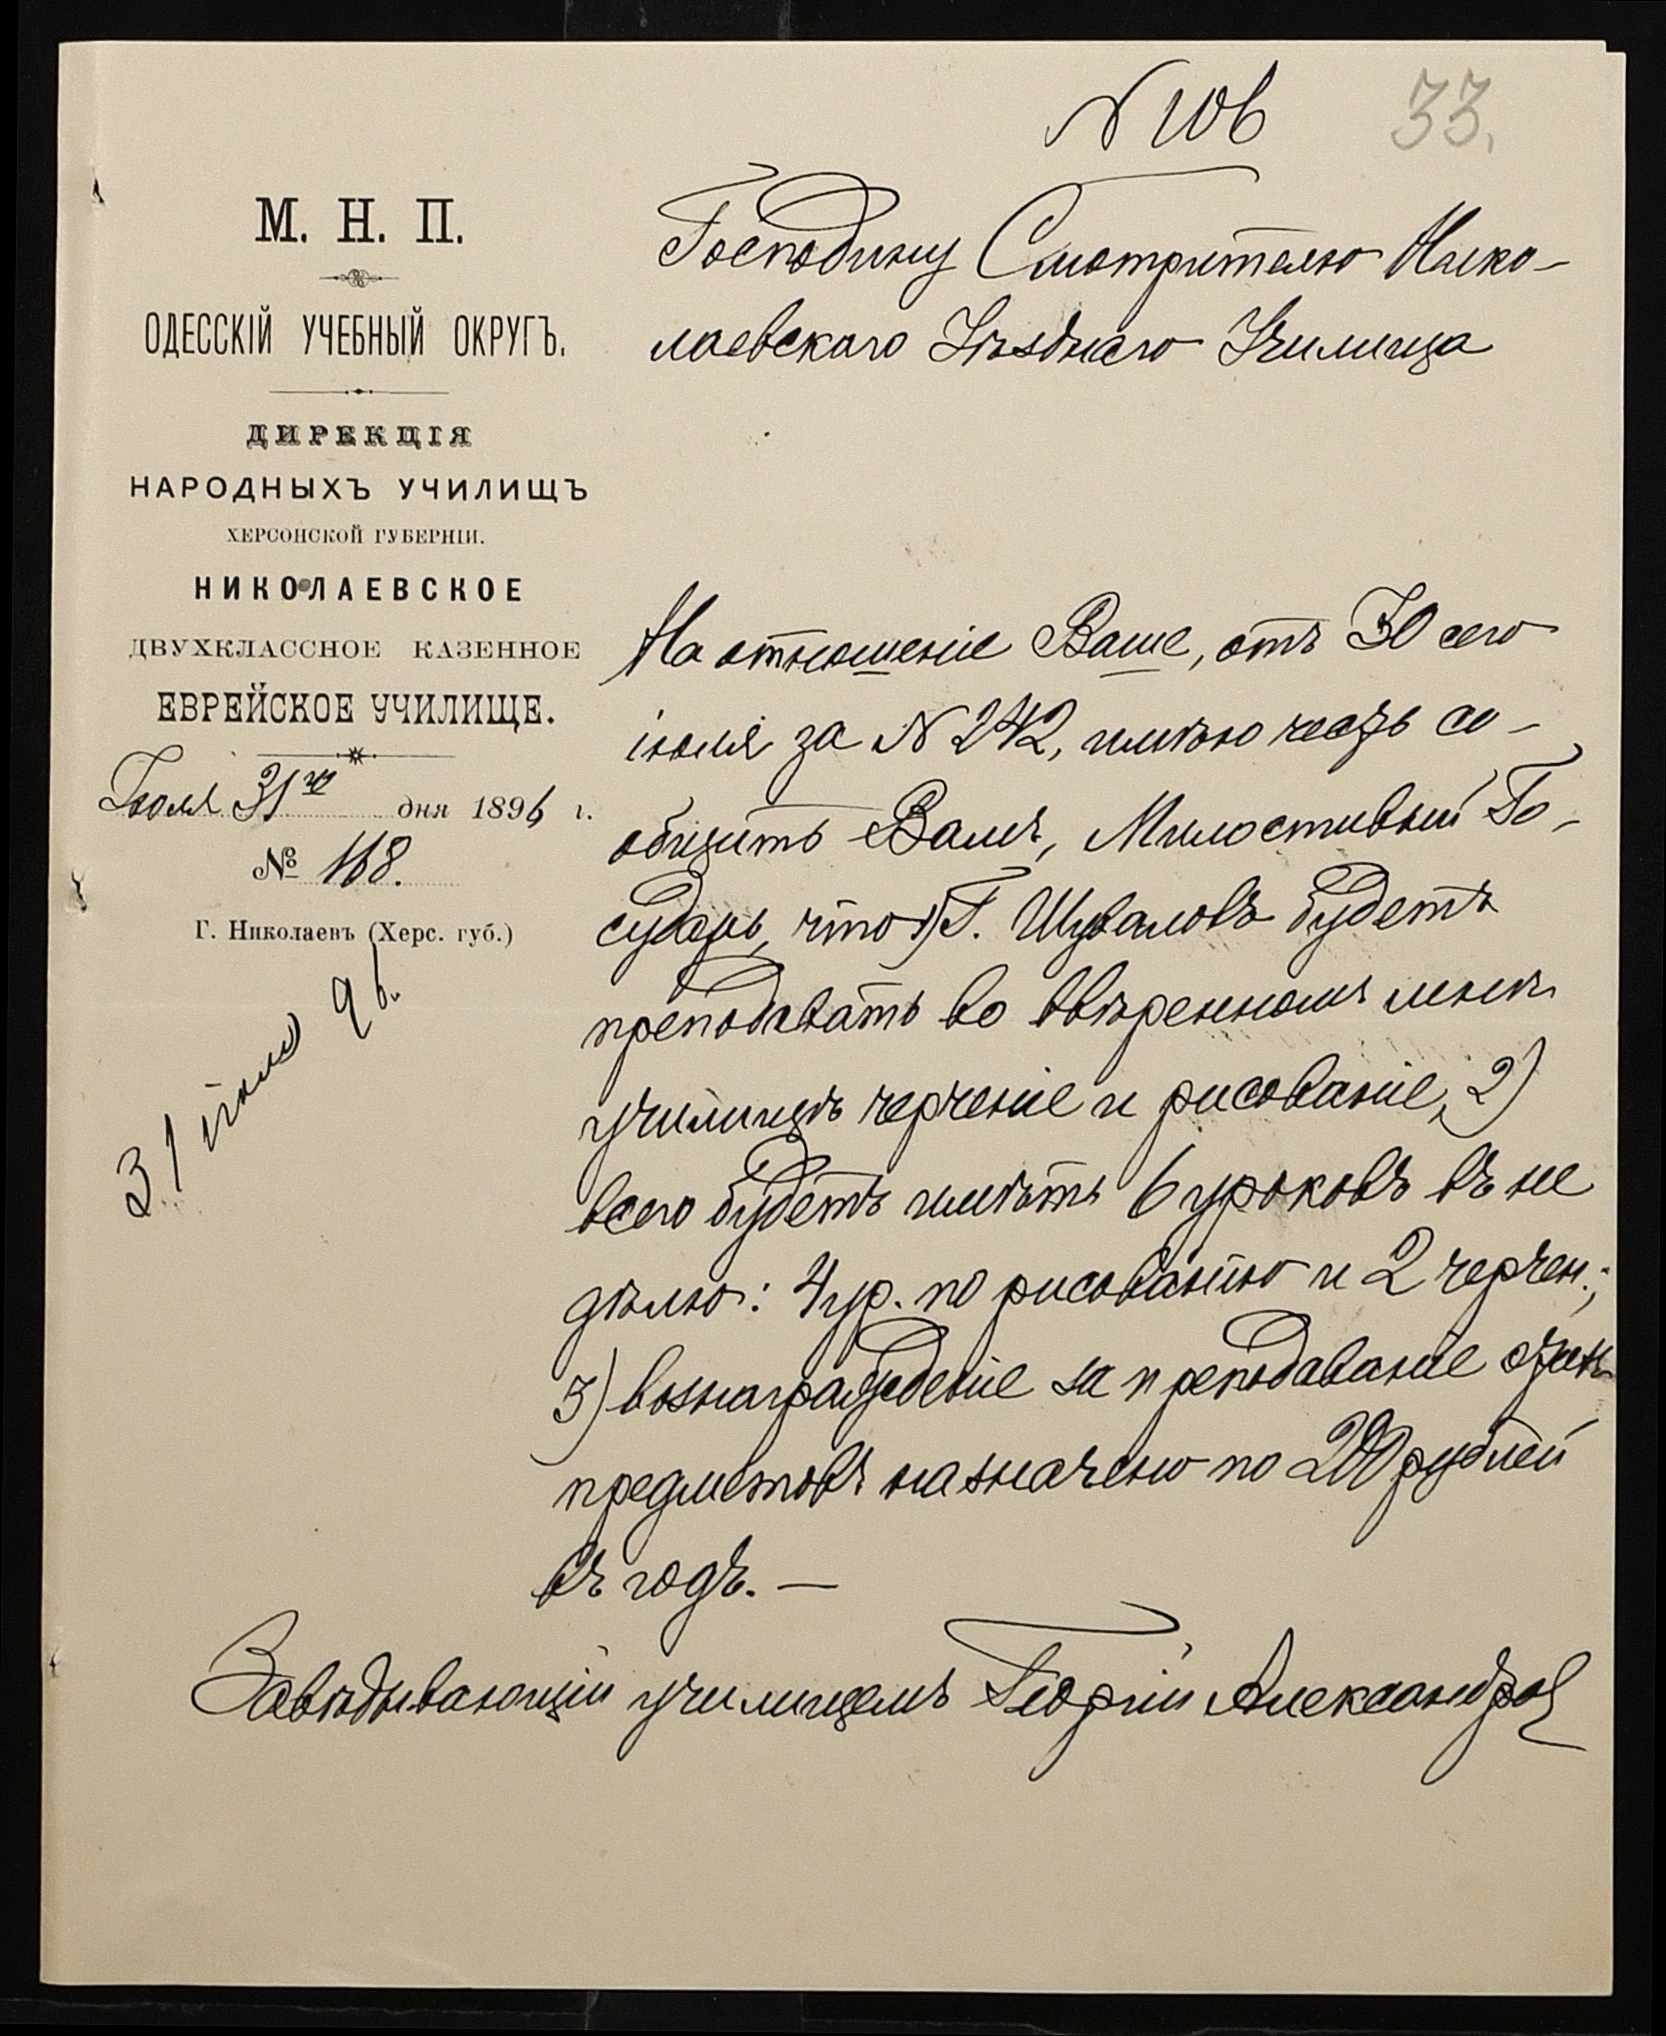 N 106
33.
М. Н. П.
ОДЕССКІЙ УЧЕБНЫЙ ОКРУГЪ.
ДИРЕКЦІЯ
НАРОДНЫХЪ УЧИЛИЩЪ
ХЕРСОНСКОЙ ГУБЕРНІИ.
НИКОЛАЕВСКОЕ
ДВУХКЛАССНОЕ КАЗЕННОЕ
ЕВРЕЙСКОЕ УЧИЛИЩЕ.
Іюля 31го дня 1896 г.
№ 168.
Г. Николаевъ (Херс. губ.)
31 іюля 96.
Господину Смотрителю Нико-
лаевскаго Уѣзднаго Училища
На отношеніе Ваше, отъ 30 сего
іюля за N 242, имѣю честь со-
общить Вамъ, Милостивый Го-
сударь, что 1) Г. Шуваловъ будетъ
преподавать во ввѣренномъ мнѣ
училищѣ черченіе и рисованіе, 2)
всего будетъ имѣть 6 уроковъ въ не
дѣлю: 4 ур. по рисованію и 2 черчен.;
3) вознагражденіе за преподаваніе
предметовъ назначено по 200 рублей
въ годъ. —
Завѣдывающій училищемъ Георгій Александров